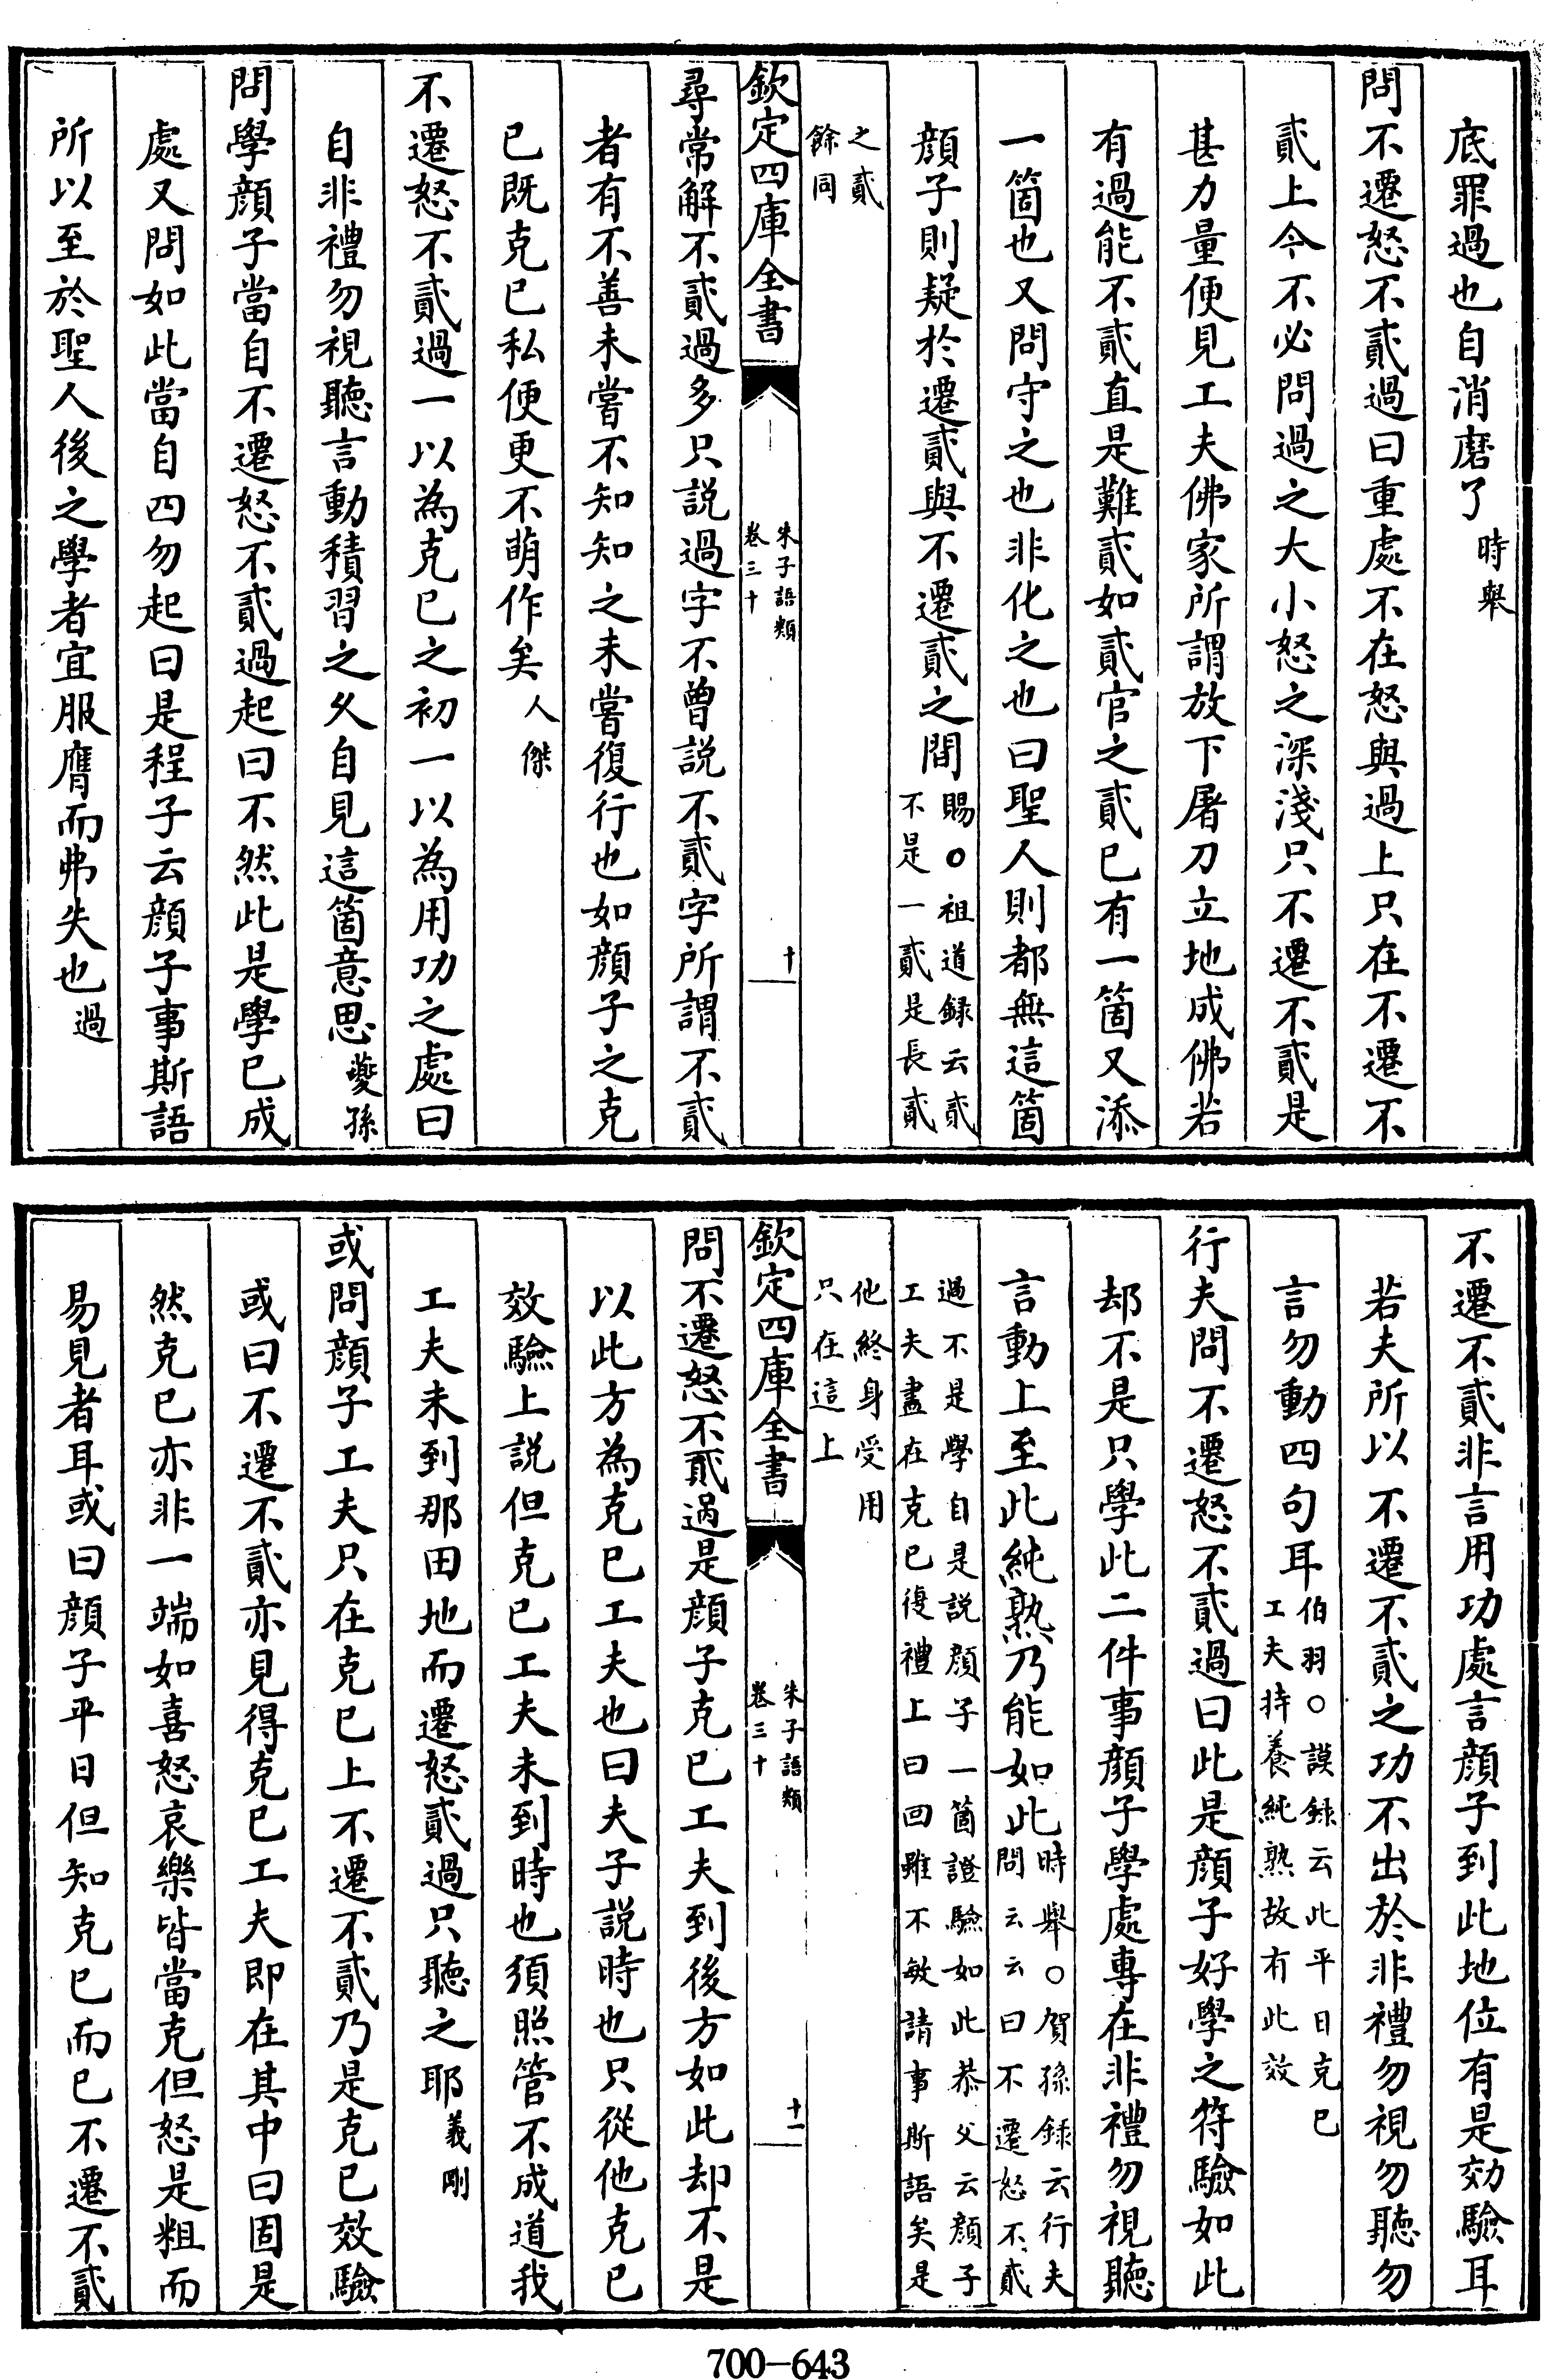 底罪過也自消磨了時舉
問不遷怒不貳過曰重處不在怒與過上只在不遷不
貳上今不必問過之大小怒之深淺只不遷不貳是
甚力量便見工夫佛家所謂放下屠刀立地成佛若
有過能不貳直是難貳如貳官之貳已有一箇又添
一箇也又問守之也非化之也曰聖人則都無這箇
顔子則疑於遷貳與不遷貳之間賜〇祖道録云貳
不是一貳是長貳
之貳
餘同
欽定四庫全書
朱子語類
卷三十
十
尋常解不貳過多只説過字不曽説不貳字所謂不貳
者有不善未嘗不知知之未嘗復行也如顔子之克
已既克已私便更不萌作矣人傑
不遷怒不貳過一以為克已之初一以為用功之處曰
自非禮勿視聽言動積習之久自見這箇意思䕫孫
問學顔子當自不遷怒不貳過起曰不然此是學已成
處又問如此當自四勿起曰是程子云顔子事斯語
所以至於聖人後之學者宜服膺而弗失也過
不遷不貳非言用功處言顔子到此地位有是効驗耳
若夫所以不遷不貳之功不出於非禮勿視勿聽勿
言勿動四句耳伯羽〇謨録云此平日克已
工夫持養純熟故有此效
行夫問不遷怒不貳過曰此是顔子好學之符驗如此
却不是只學此二件事顔子學處專在非禮勿視聽
言動上至此純熟乃能如此時舉〇賀孫録云行夫
問云云曰不遷怒不貳
過不是學自是説顔子一箇證驗如此恭父云顔子
工夫盡在克已復禮上曰回雖不敏請事斯語矣是
他終身受用
只在這上
欽定四庫全書
朱子語類
卷三十
十一
問不遷怒不貳過是顔子克已工夫到後方如此却不是
以此方為克已工夫也曰夫子説時也只從他克已
效驗上説但克已工夫未到時也須照管不成道我
工夫未到那田地而遷怒貳過只聽之耶義剛
或問顔子工夫只在克已上不遷不貳乃是克已效驗
或曰不遷不貳亦見得克已工夫即在其中曰固是
然克已亦非一端如喜怒哀樂皆當克但怒是粗而
易見者耳或曰顔子平日但知克已而已不遷不貳
700-643